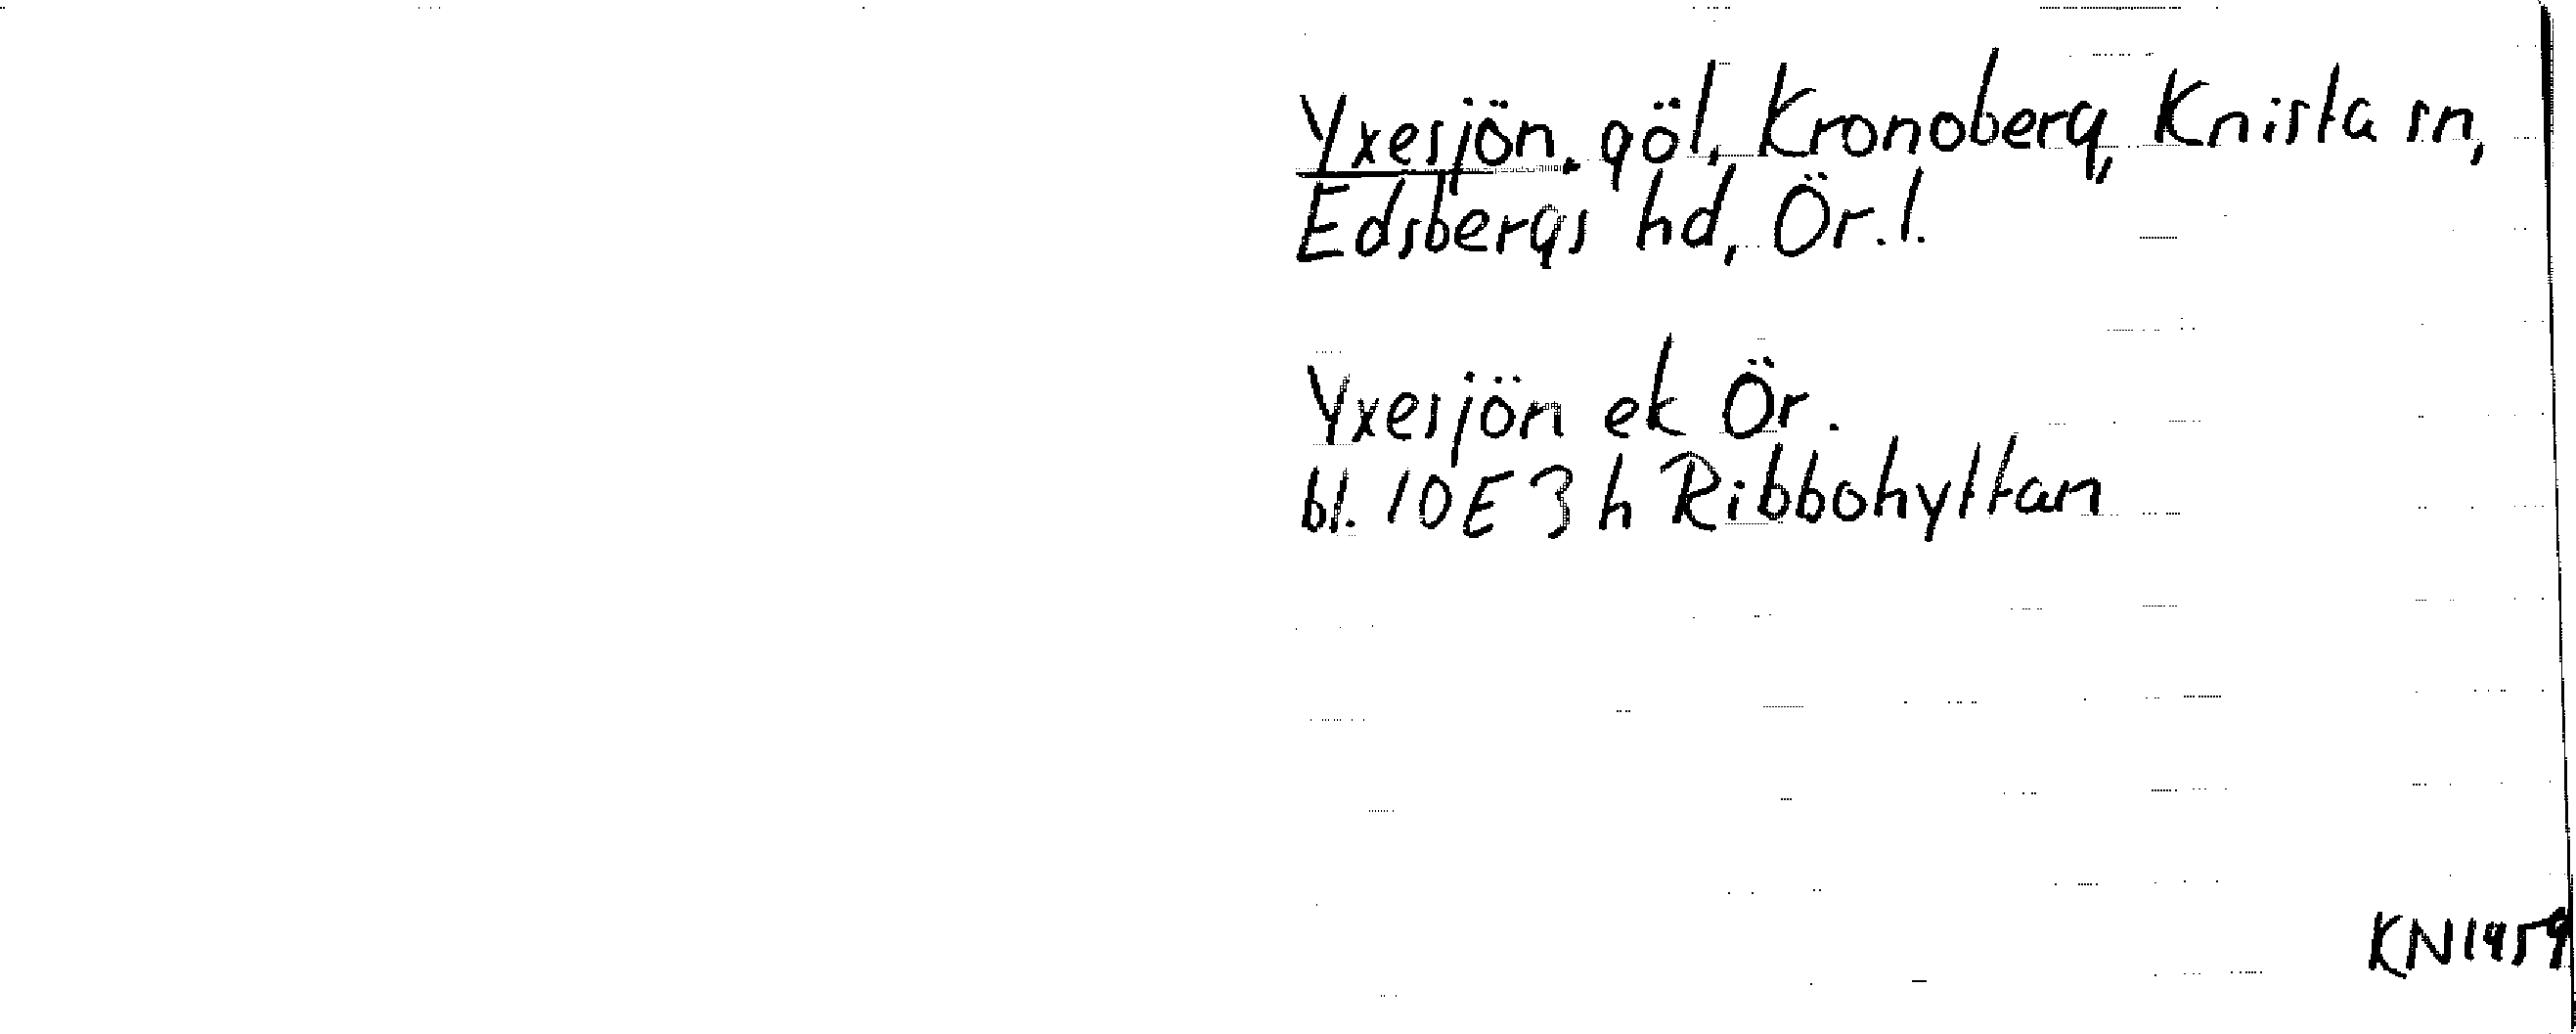 Yxesjön. göl, Kronoberg, Knista sn,
Edsbergs hd, Ör. l.
Yxesjön ek Ör.
bl. 10E 3h Ribbohyttan
KN1959